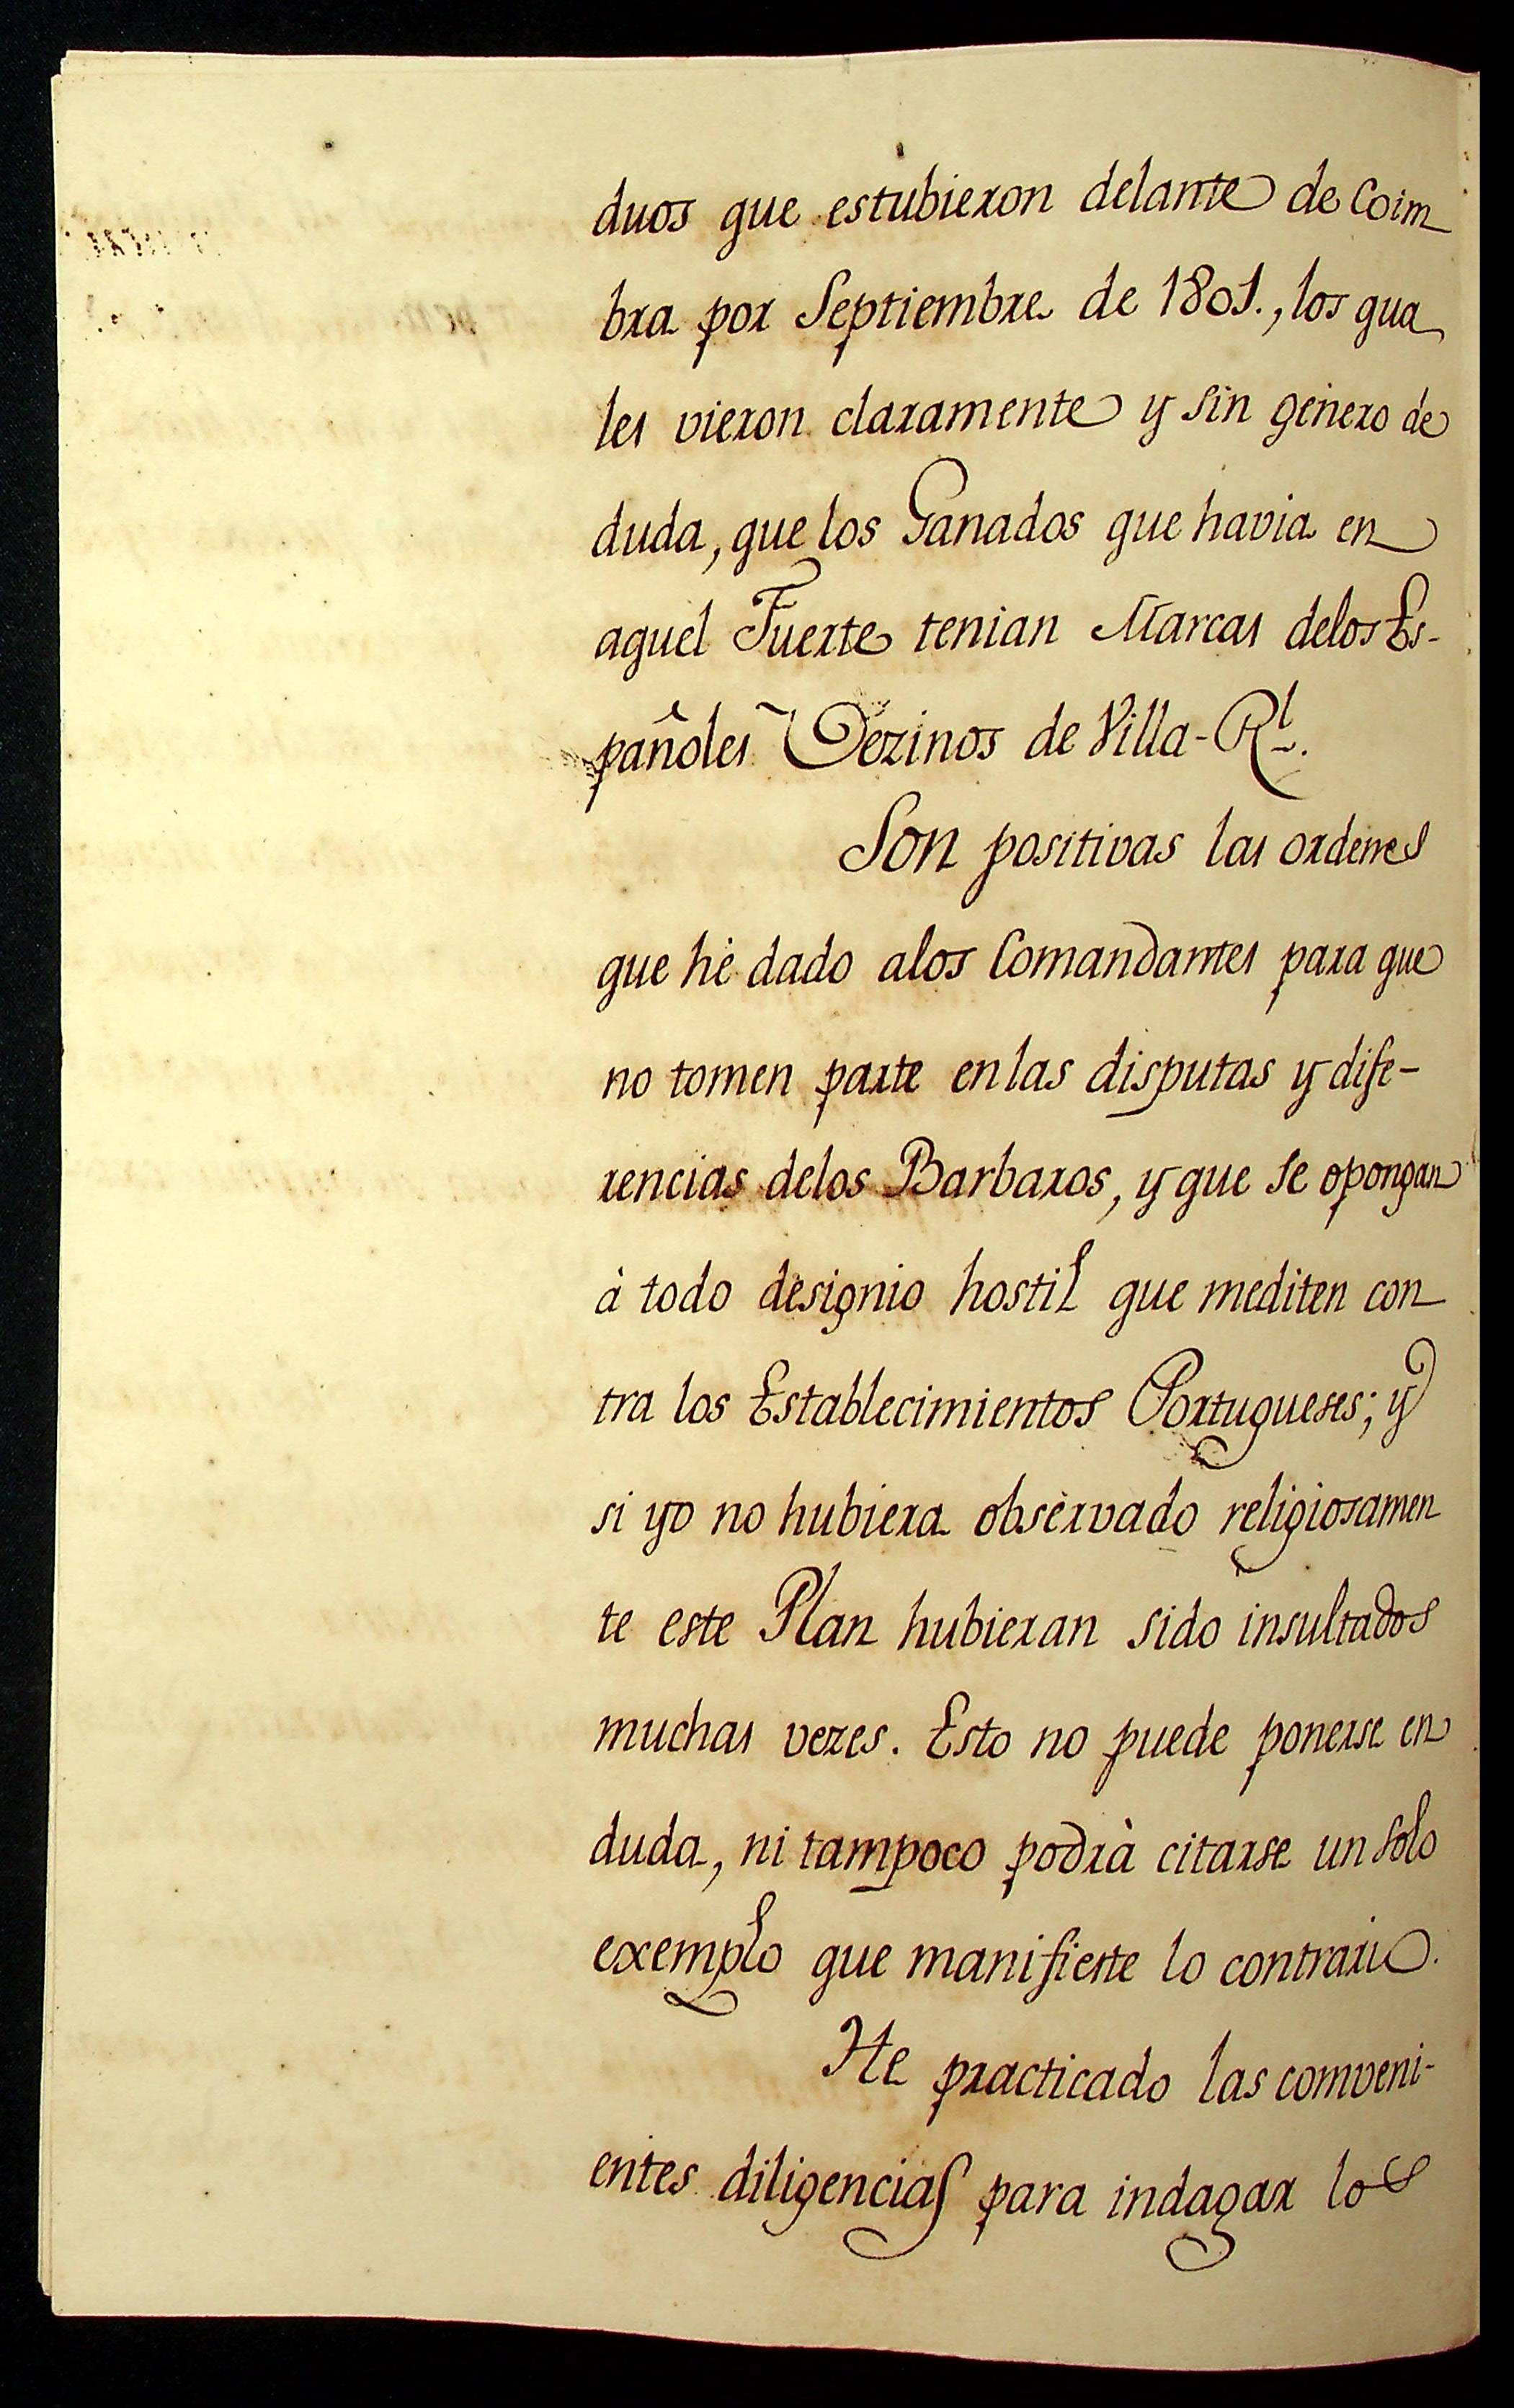 duos que estubieron delante de Coim
bra por Septiembre de 1801., los qua
les vieron claramente y sin genero de
duda, que los Ganados que havia en
aquel Fuerte tenian Marcas delos Es-
pañoles Vezinos de Villa-Rl.
Son positivas las ordenes
que hé dado alos Comandantes para que
no tomen parte en las disputas y dife-
rencias delos Barbaros, y que se opongan
à todo designio hostil que mediten con
tra los Establecimientos Portugueses; y
si yo no hubiera observado religiosamen
te este Plan hubieran sido insultados
muchas vezes. Esto no puede ponerse en
duda, ni tampoco podrà citarse un solo
exemplo que manifieste lo contrario.
He practicado las conveni-
entes diligencias para indagar los